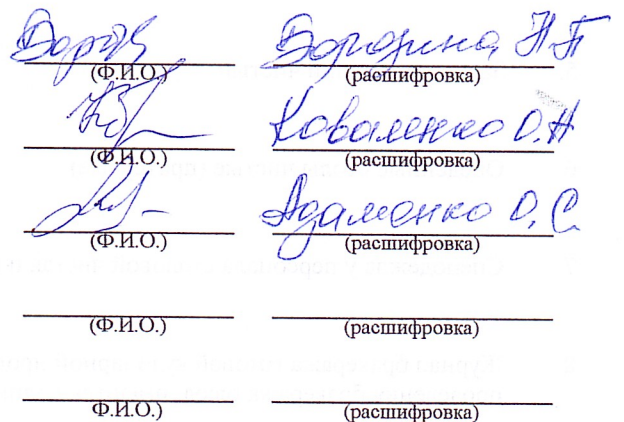 Бородина, Н.П
(Ф.И.О.) (расшифровка)
Коваленко О.Н
(Ф.И.О.) (расшифровка)
Адаменко О.С.
(Ф.И.О.) (расшифровка)
(Ф.И.О.) (расшифровка)
Ф.И.О.) (расшифровка)